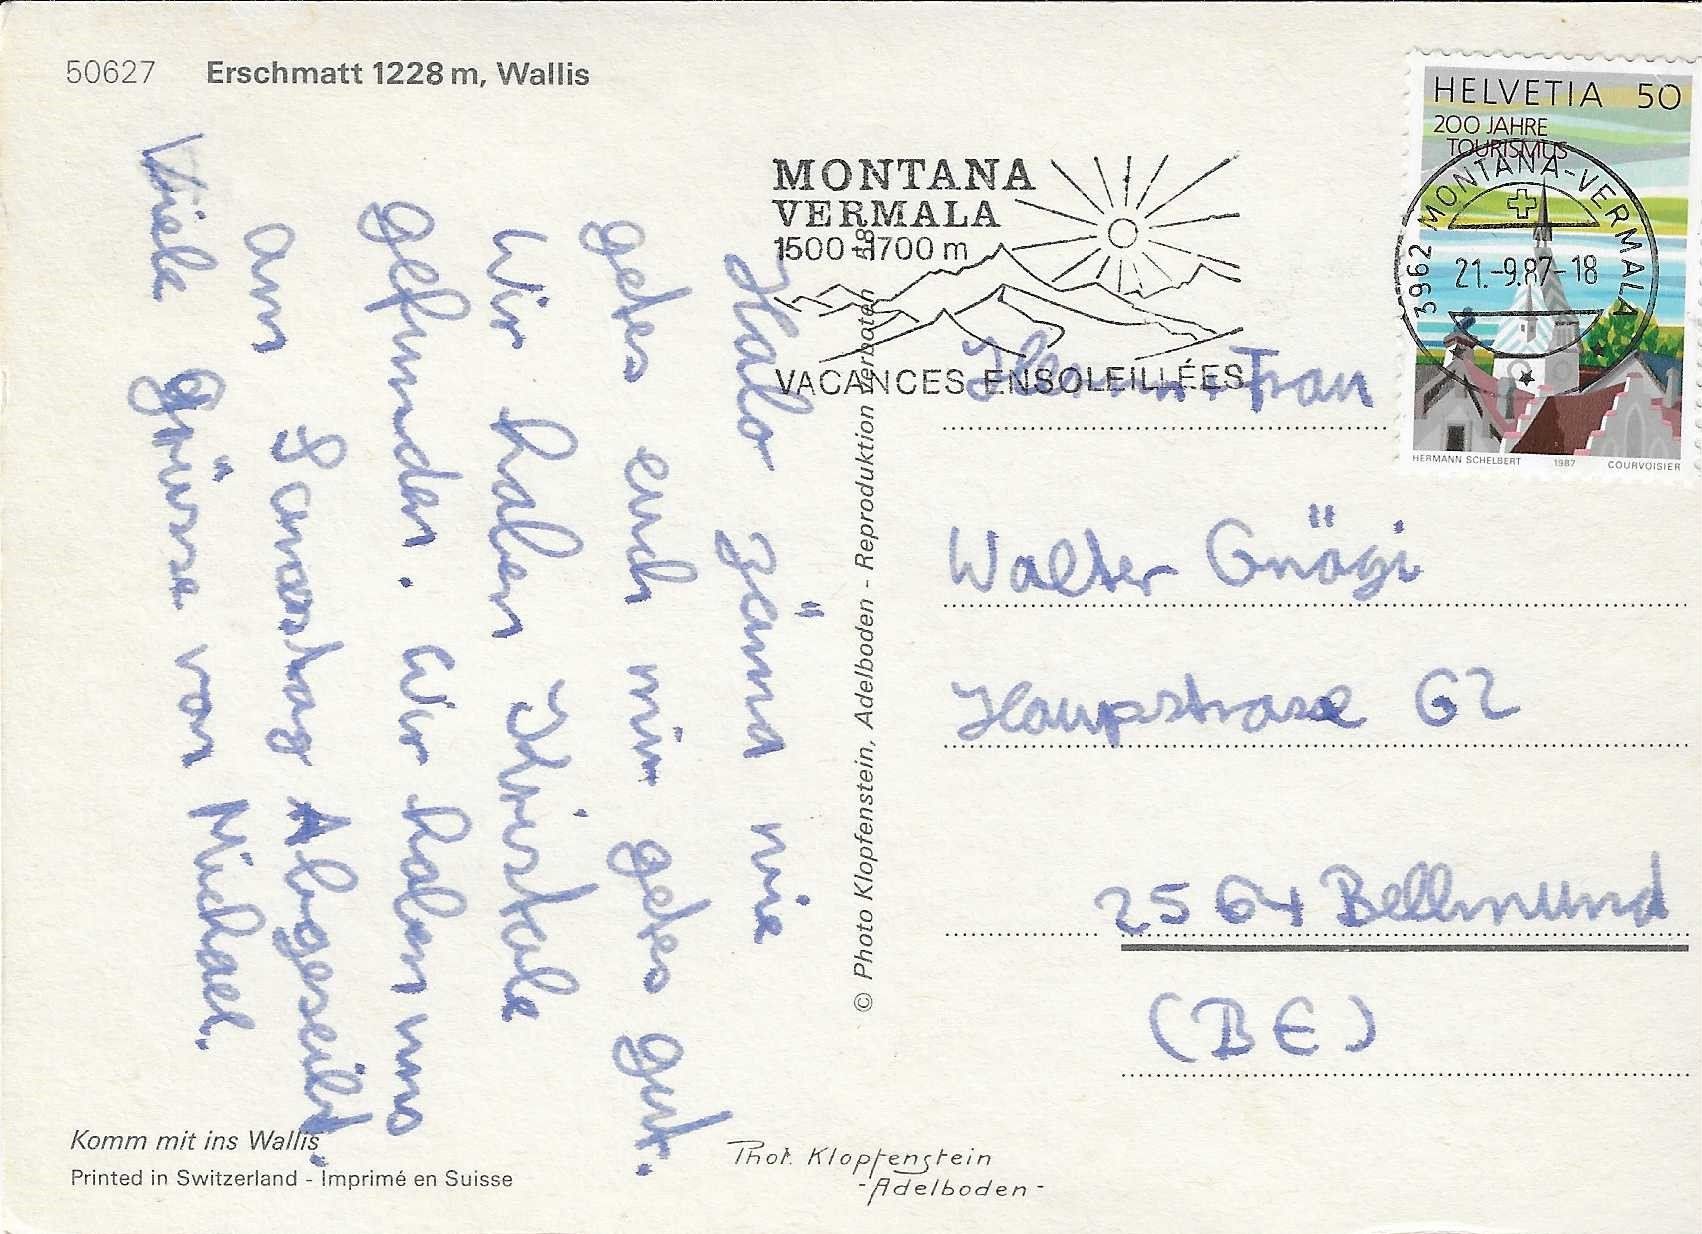 50627 Erschmatt 1228 m, Wallis
HELVETIA 50
200 JAHRE
TOURISMUS
3962 MONTANA-VERMALA
21.-9.87-18
HERMANN SCHELBERT 1987 COURVOISIER
MONTANA
VERMALA
1500-1700 m
VACANCES ENSOLEILLÉES
Halo Zämä wie
getes euch mir getes gut.
Wir haben Kristale
gefunden. Wir haben uns
am Samstag Abgeseilt.
Viele Grüsse von Michael.
© Photo Klopfenstein, Adelboden - Reproduktion verboten 518
Frau
Walter Gnägi
Haupstrase 62
2564 Bellmund
(BE)
Komm mit ins Wallis
Printed in Switzerland - Imprimé en Suisse
Phot. Klopfenstein
-Adelboden-